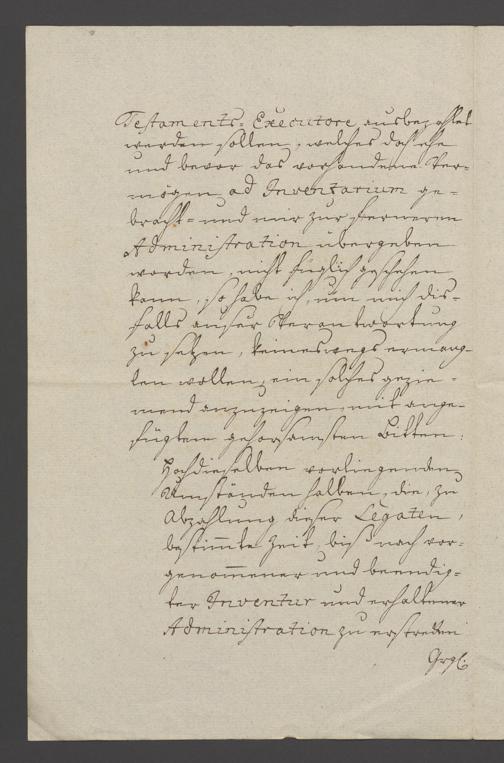 Testaments-Executore ausbezahlet
werden sollen, welches doch ehe
und bevor das vorhandene Ver-
mögen ad Inventarium ge-
bracht- und mir zur ferneren
Administration übergeben
worden, nicht füglich geschehen
kann, so habe ich, um mich dis-
falls ausser Verantwortung
zu setzen, keineswegs ermang-
len wollen, ein solches gezie-
mend anzuzeigen, mit ange-
fügtem gehorsamsten Bitten:
Hochdieselben vorliegenden
Umständen halben, die, zu
Abzahlung dieser Legaten,
bestimmte Zeit, bis nach vor-
genommener und beendig-
ter Inventur und erhaltener
Administration zu erstreken